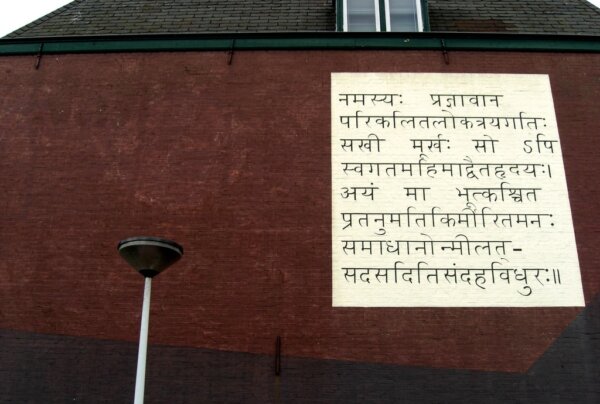 नमस्यः प्रज्ञावान
परिकलितलोकत्रयगतिः
सखी मूर्खः सो ऽपि
स्वगतमहिमाद्वैतहृदयः।
अयं मा भूत्कश्चित
प्रतनुमतिकिर्मीरितमनः
समाधानोन्मीलत्-
सदसदितिसंदहविधुरः॥